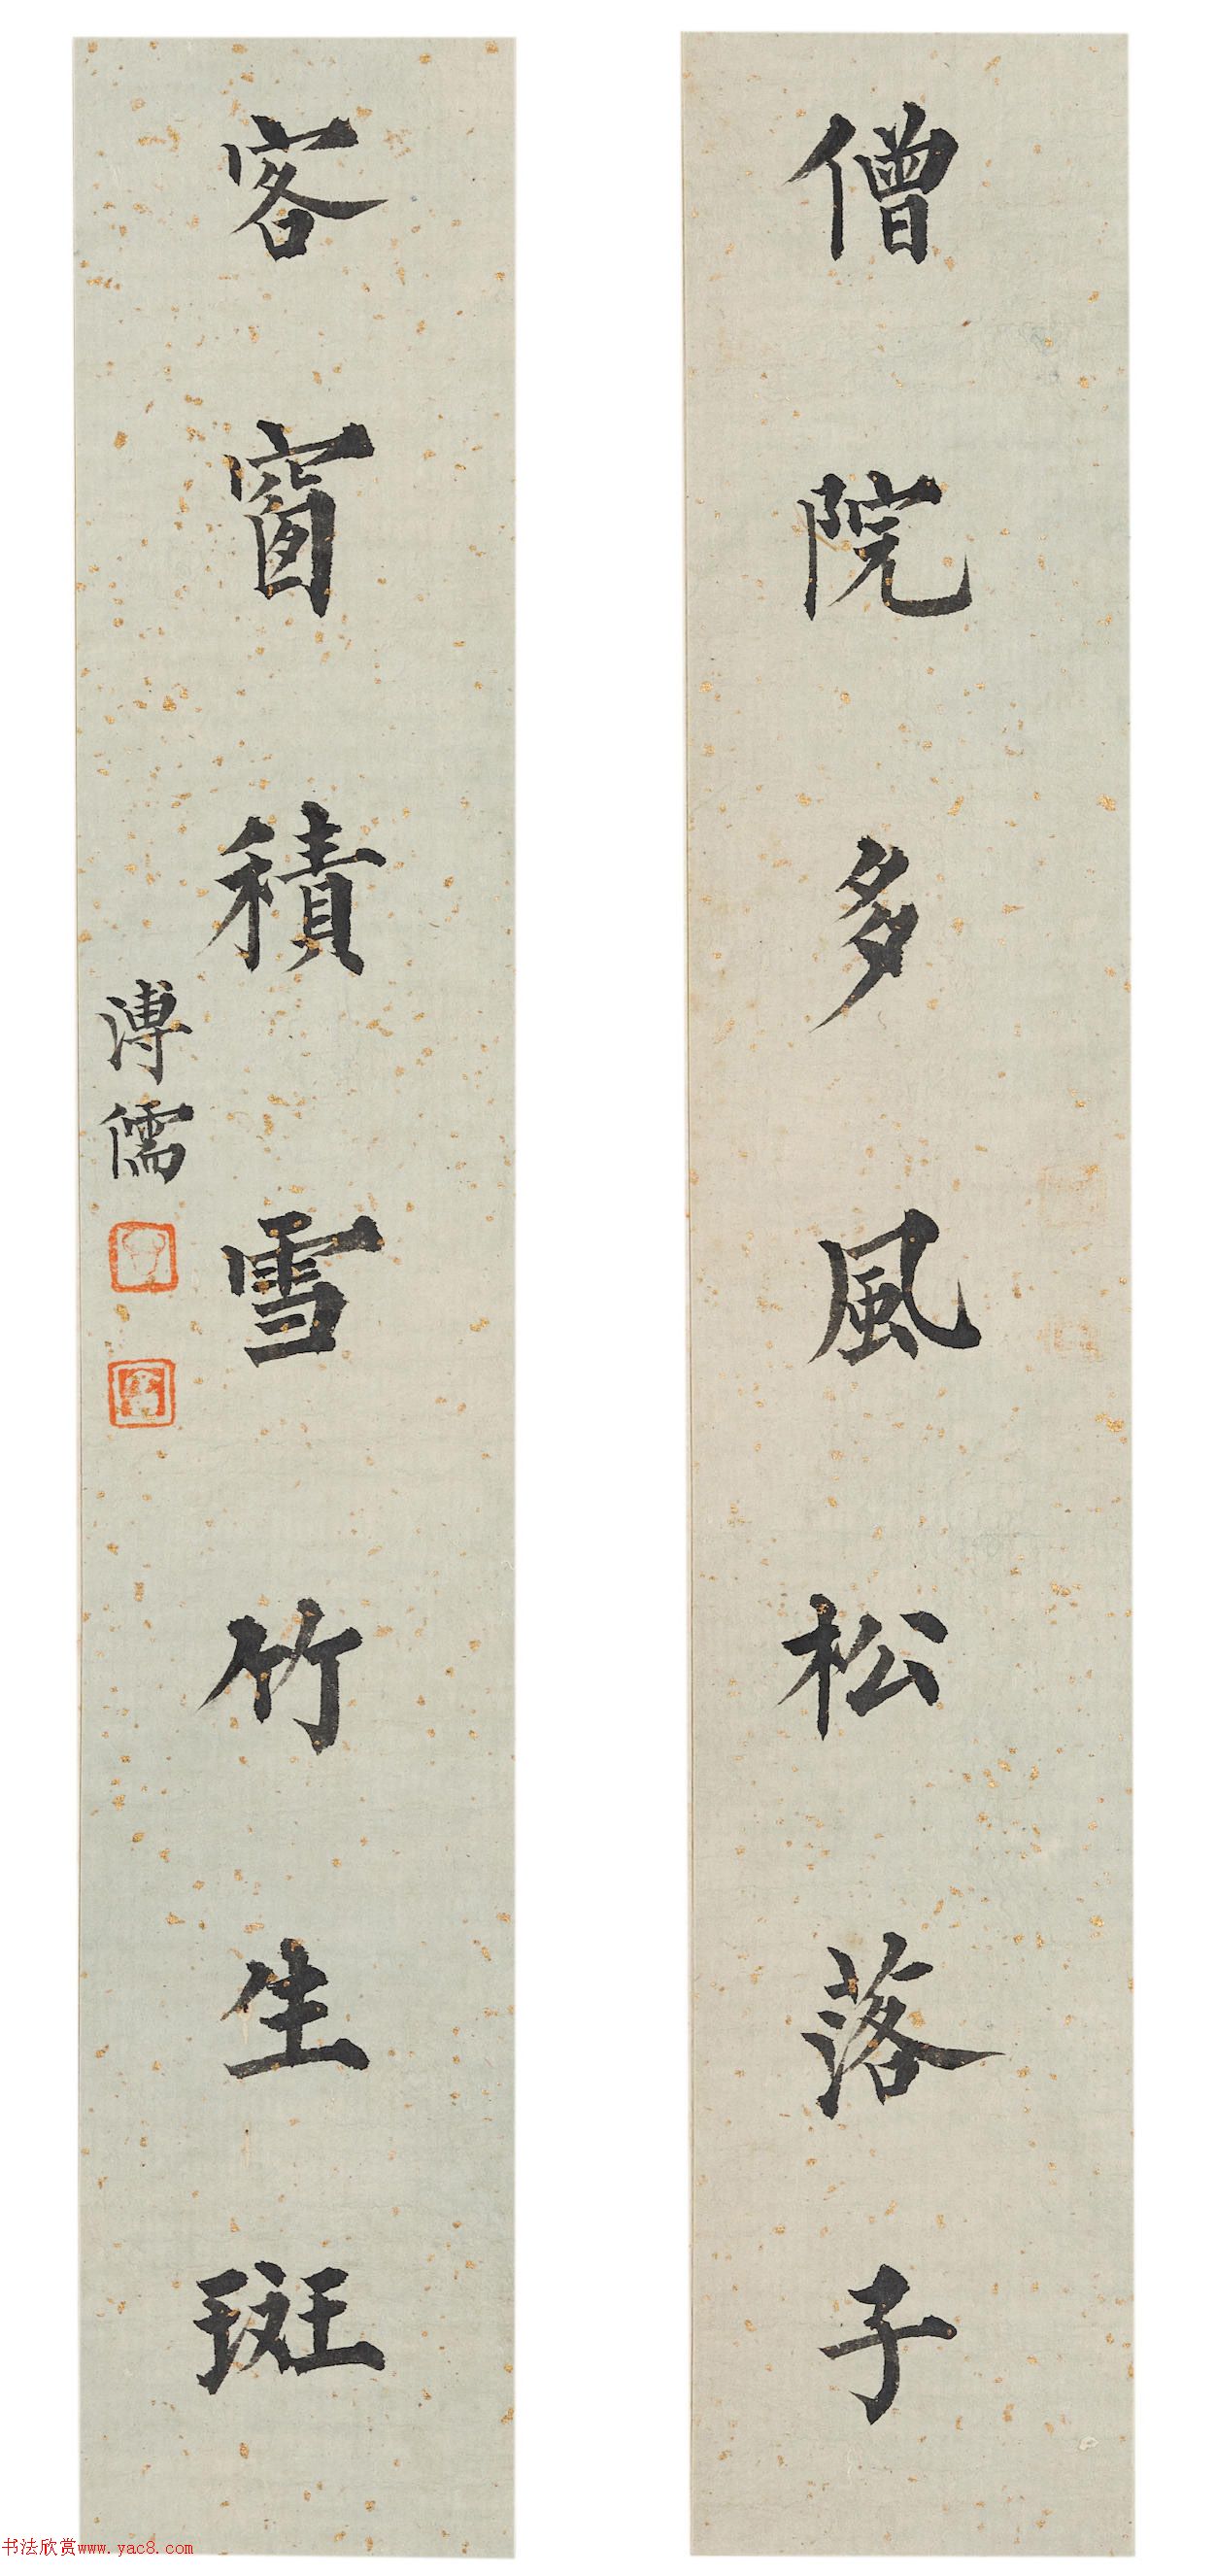 僧院多風松落子
客窗積雪竹生斑
溥儒
书法欣赏www.yac8.com